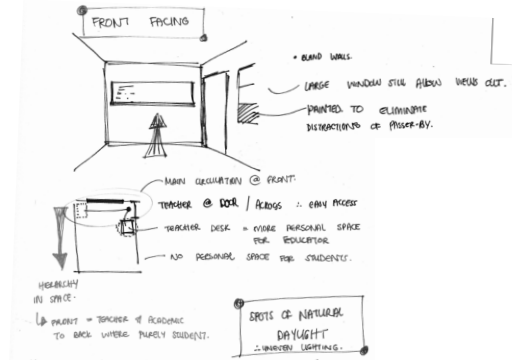 FRONT FACING
• BLAND WALLS.
LARGE WINDOW SILL ALLOW VIEWS OUT.
PAINTED TO ELIMINATE
DISTRACTIONS OF PASSER-BY.
MAIN CIRCULATION @ FRONT.
TEACHER @ DOOR / ACROSS ∴ EASY ACCESS
TEACHER DESK = MORE PERSONAL SPACE
FOR EDUCATOR
NO PERSONAL SPACE FOR STUDENTS.
HIERARCHY
IN SPACE.
↳ FRONT = TEACHER & ACADEMIC
TO BACK WHERE PURELY STUDENT.
SPOTS OF NATURAL
DAYLIGHT
∴ UNEVEN LIGHTING.